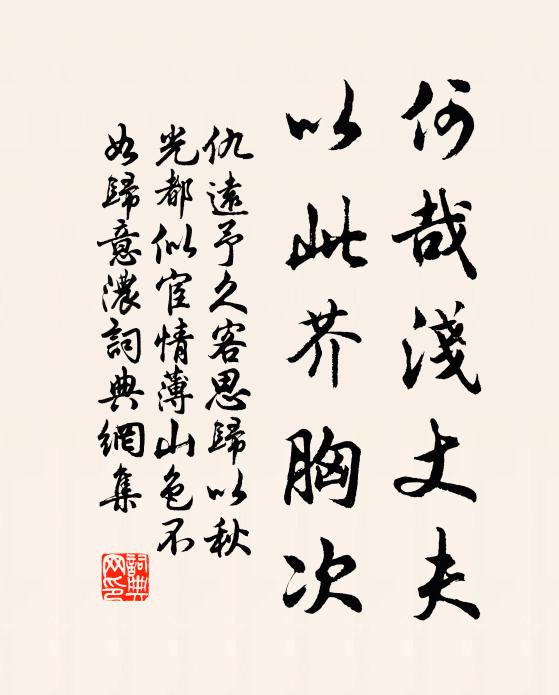 何哉淺丈夫
以此芥胸次
仇遠予久客思歸以秋
光都似宦情薄山色不
如歸意濃詞典網集
詞典
网印